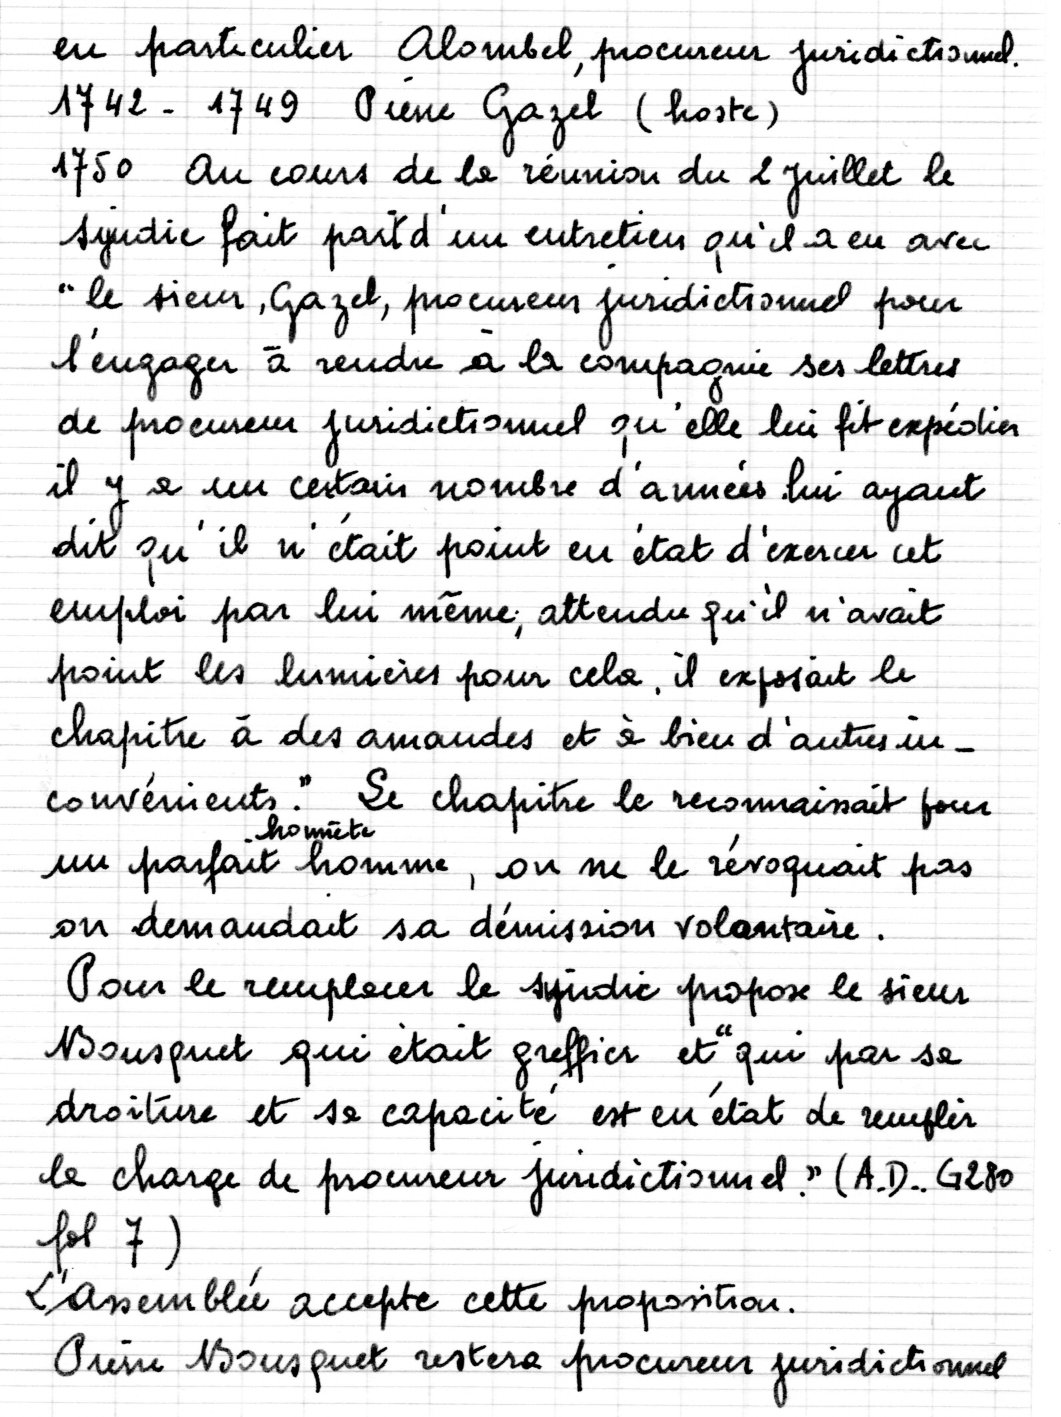 en particulier Alombel, procureur juridictionnel.
1742 - 1749 Pierre Gazel (hoste)
1750 Au cours de la réunion du 2 juillet le
syndic fait part d'un entretien qu'il a eu avec
"le sieur, Gazel, procureur juridictionnel pour
l'engager à rendre à la compagnie ses lettres
de procureur juridictionnel qu'elle lui fit expédier
il y a un certain nombre d'années lui ayant
dit qu'il n'était point en état d'exercer cet
emploi par lui même, attendu qu'il n'avait
point les lumières pour cela, il exposait le
chapitre à des amandes et à bien d'autres in-
convénients." Le chapitre le reconnaissait pour
un parfait honnête homme, on ne le révoquait pas
on demandait sa démission volontaire.
Pour le remplacer le syndic propose le sieur
Bousquet qui était greffier et "qui par sa
droiture et sa capacité est en état de remplir
la charge de procureur juridictionnel." (A.D.. G280
fol 7)
L'assemblée accepte cette proposition.
Pierre Bousquet restera procureur juridictionnel